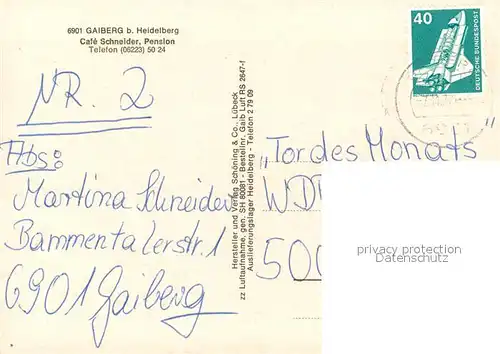 6901 GAIBERG b. Heidelberg
Café Schneider, Pension
Telefon (06223) 50 24
NR. 2
Abs:
Martina Schneider
Bammentalerstr. 1
6901 Gaiberg
Hersteller und Verlag Schöning & Co., Lübeck
zz Luftaufnahme, gen. SH 80081 - Bestellnr. Gaib Luft RS 2647-f
Auslieferungslager Heidelberg - Telefon 2 79 09
40
DEUTSCHE BUNDESPOST
„Tor des Monats"
WDR
500
privacy protection
Datenschutz